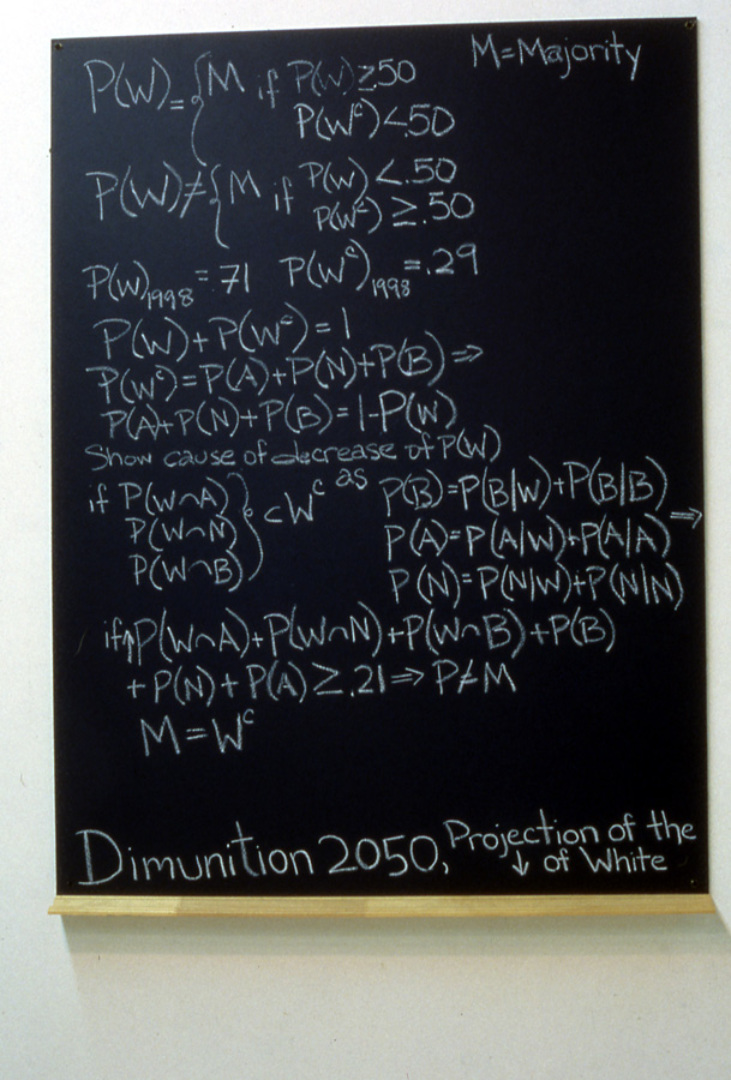 P(W)={M if P(W)≥50 M=Majority
P(Wᶜ)<.50
P(W)≠{M if P(W)<.50
P(Wᶜ)≥.50
P(W)₁₉₉₈=.71 P(Wᶜ)₁₉₉₈=.29
P(W)+P(Wᶜ)=1
P(Wᶜ)=P(A)+P(N)+P(B)⇒
P(A)+P(N)+P(B)=1-P(W)
Show cause of decrease of P(W)
if P(W∩A)
P(W∩N)
P(W∩B)
} ⊂Wᶜ as
P(B)=P(B|W)+P(B|B)
P(A)=P(A|W)+P(A|A) ⇒
P(N)=P(N|W)+P(N|N)
if↑P(W∩A)+P(W∩N)+P(W∩B)+P(B)
+P(N)+P(A)≥.21⇒P≠M
M=Wᶜ
Dimunition 2050, Projection of the
↓ of White